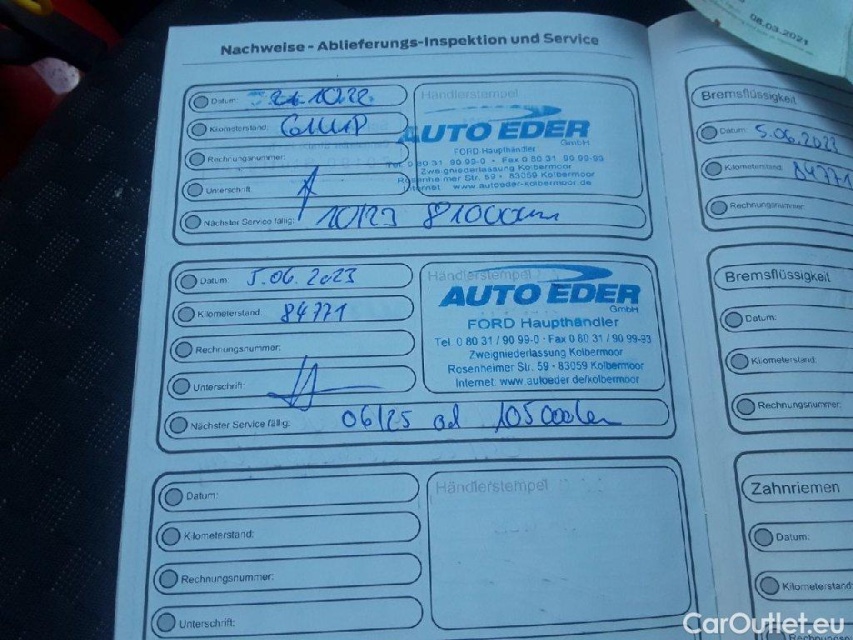 08.03.2021
Nachweise - Ablieferungs-Inspektion und Service
Datum:
Händlerstempel
Kilometerstand:
AUTO EDER
GmbH
FORD Haupthändler
Rechnungsnummer:
Tel. 0 80 31 90 99-0 · Fax 0 80 31 90 99-93
Zweigniederlassung Kolbermoor
Unterschrift:
Rosenheimer Str. 59 · 83059 Kolbermoor
Internet: www.autoeder-kolbermoor.de
Nächster Service fällig: 10/23 81000km
Datum: 5.06.2023
Händlerstempel
Kilometerstand: 84771
AUTO EDER
GmbH
FORD Haupthändler
Rechnungsnummer:
Tel. 0 80 31 / 90 99-0 · Fax 0 80 31 / 90 99-93
Zweigniederlassung Kolbermoor
Unterschrift:
Rosenheimer Str. 59 · 83059 Kolbermoor
Internet: www.autoeder.de/kolbermoor
Nächster Service fällig: 06/25 od 105000km
Datum:
Händlerstempel
Kilometerstand:
Rechnungsnummer:
Unterschrift:
Bremsflüssigkeit
Datum: 5.06.2023
Kilometerstand: 84771
Rechnungsnummer:
Bremsflüssigkeit
Datum:
Kilometerstand:
Rechnungsnummer:
Zahnriemen
Datum:
Kilometerstand:
CarOutlet.eu